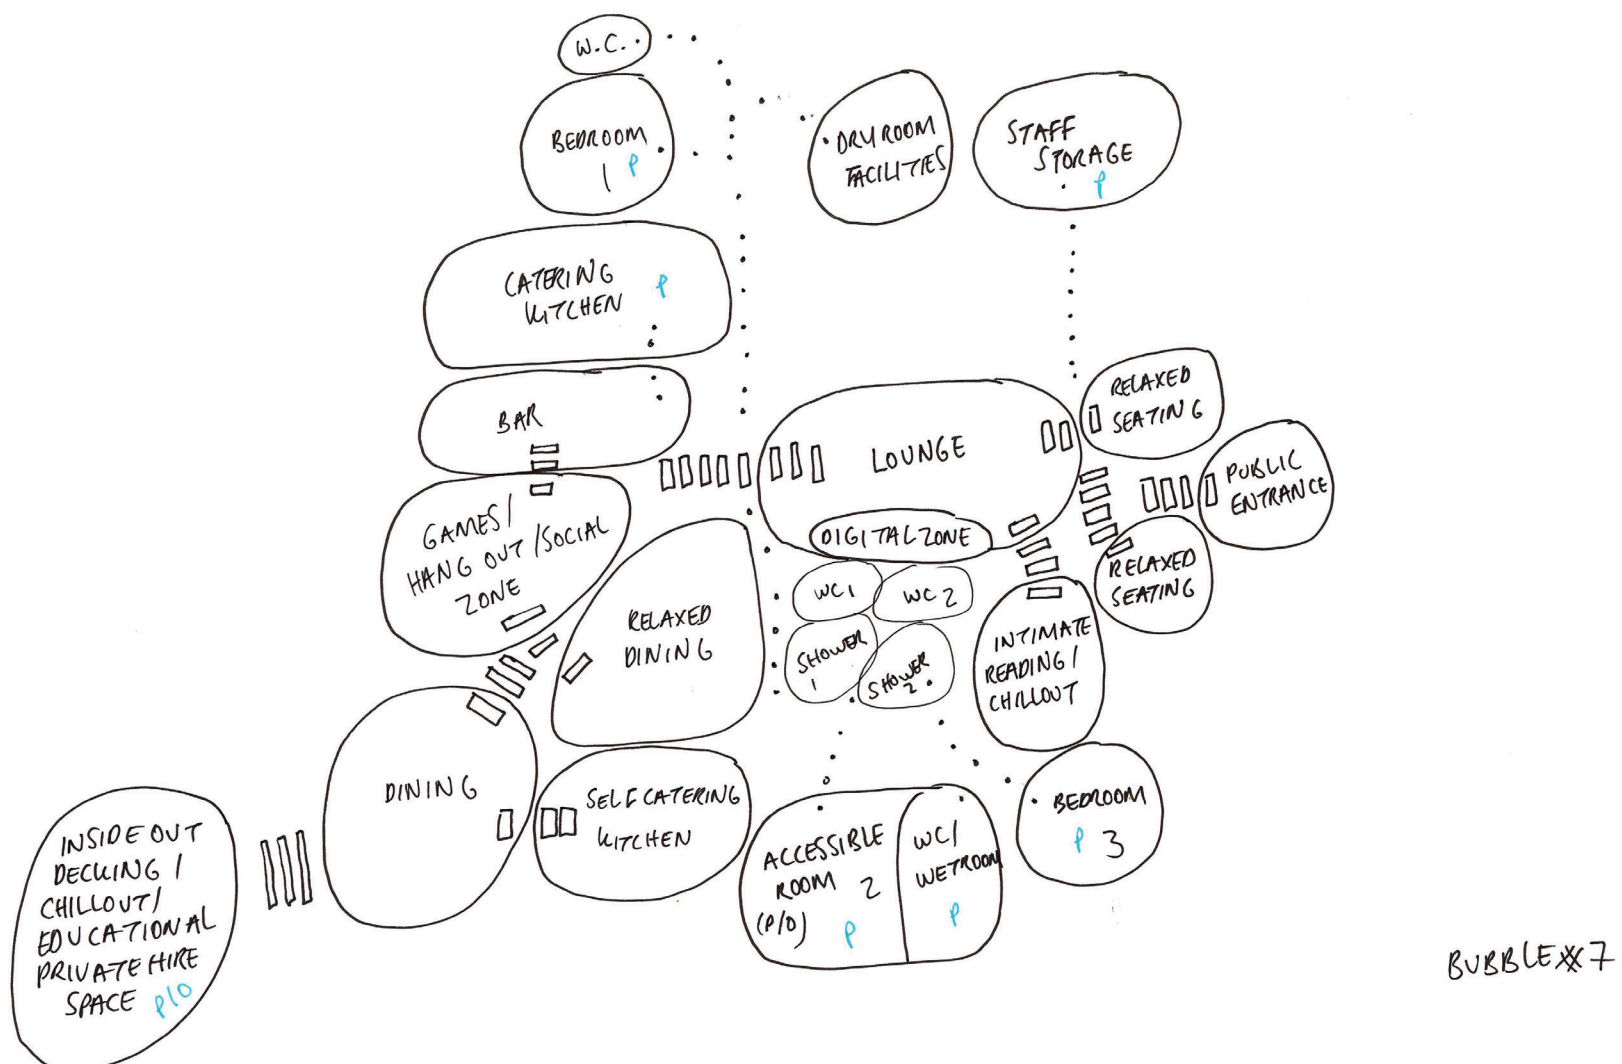 W.C.
BEDROOM
1 P
DRY ROOM
FACILITIES
STAFF
STORAGE
P
CATERING
KITCHEN P
BAR
LOUNGE
DIGITAL ZONE
RELAXED
SEATING
PUBLIC
ENTRANCE
RELAXED
SEATING
GAMES/
HANG OUT/SOCIAL
ZONE
RELAXED
DINING
WC1
WC2
SHOWER
1
SHOWER
2
INTIMATE
READING/
CHILLOUT
DINING
SELF CATERING
KITCHEN
ACCESSIBLE
ROOM 2
(P/O) P
WC/
WETROOM
P
BEDROOM
P 3
INSIDE OUT
DECKING /
CHILLOUT/
EDUCATIONAL
PRIVATE HIRE
SPACE P/O
BUBBLE #7